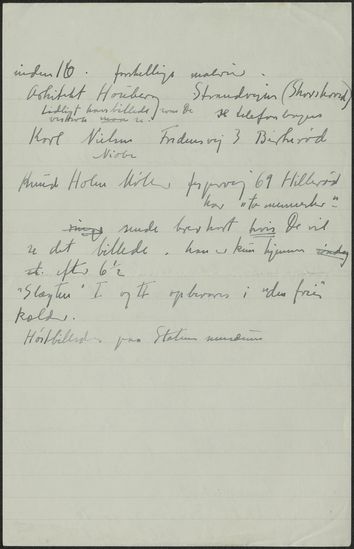 inden 16. forskellige malerier.
Arkitekt Houberg Strandvejen (Skovshoved)
Lidligt hans billede, vær De se telefonbogen
Karl Nielsen Fredensvej 3 Birkerød
Niobe
Knud Holm Møller 69 Hillerød
har "to mennesker"
ringe sende brevkort hvis De vil
se det billede. han er kun hjemme
efter 6½
"Slagten" I og II opbevares i "den frie"
kælder.
Höstbilledet paa Statens museum